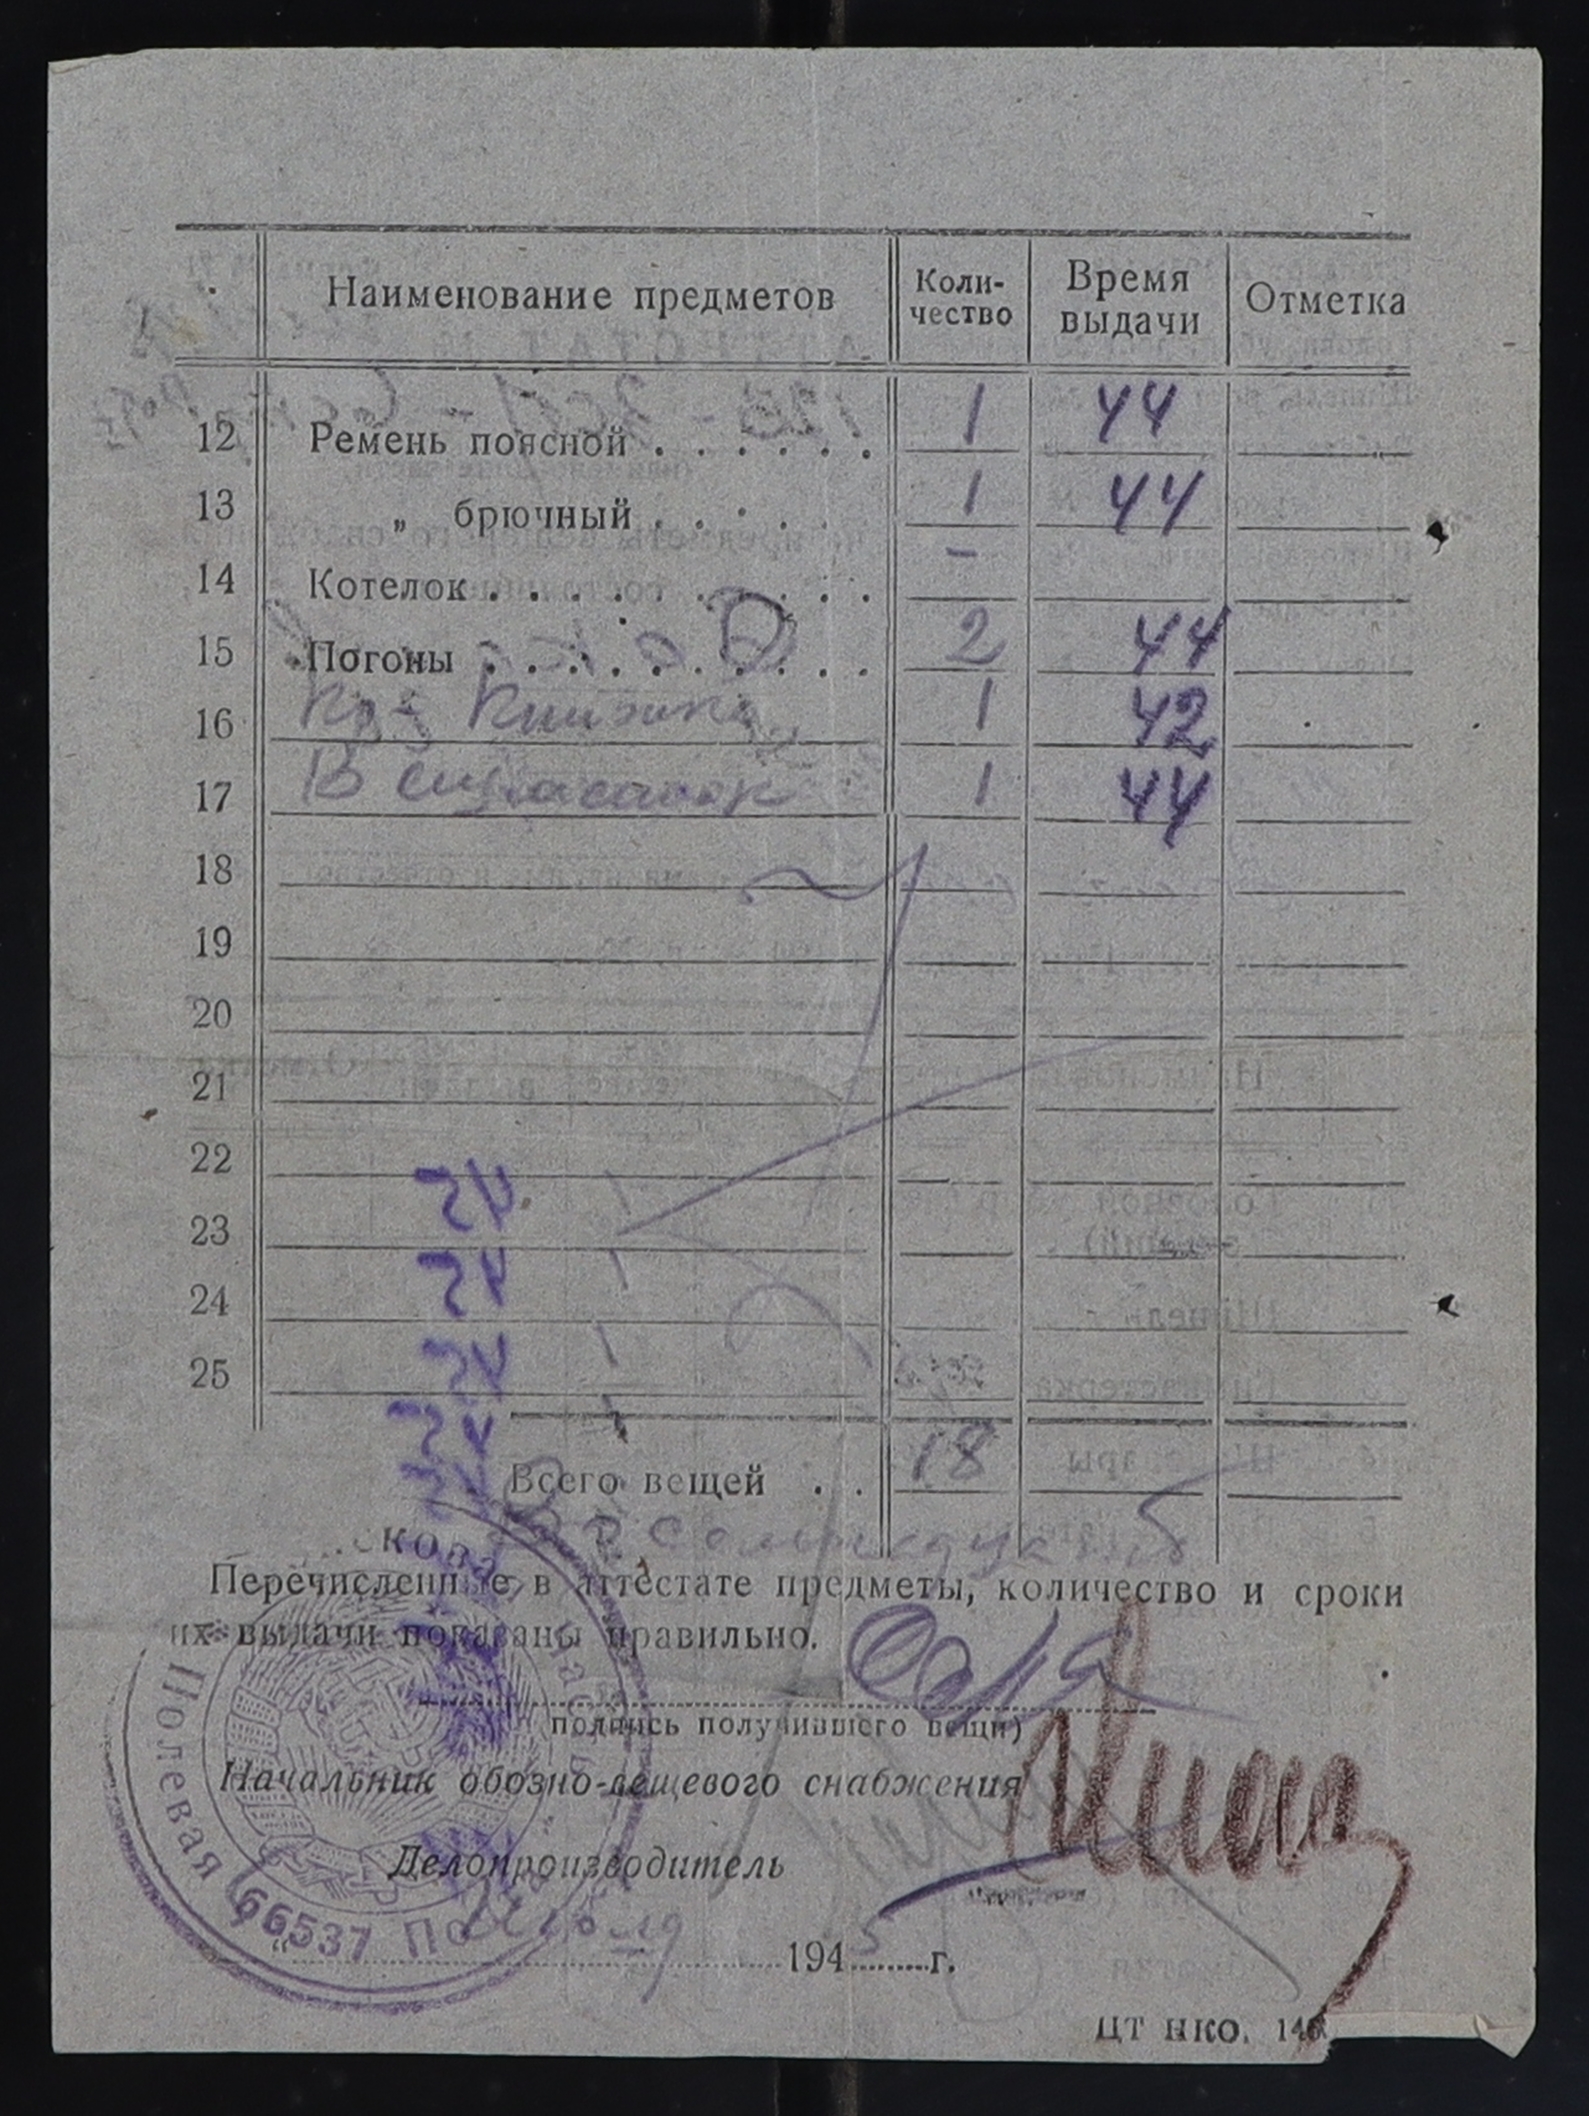 Наименование предметов Коли-чество Время выдачи Отметка
12 Ремень поясной . . . . . . 1 44
13 „ брючный . . . . . 1 44
14 Котелок . . . . . . . . . . -
15 Погоны . . . . . . . . . . 2 44
16 Кр-. Книжка 1 42
17 В 1 44
18
19
20
21
22
23
24
25
Всего вещей . . 18
Перечисленные в аттестате предметы, количество и сроки
их выдачи показаны правильно.
подпись получившего вещи)
Начальник обозно-вещевого снабжения
Делопроизводитель
194 5 г.
ЦТ НКО. 14
Полевая 66537